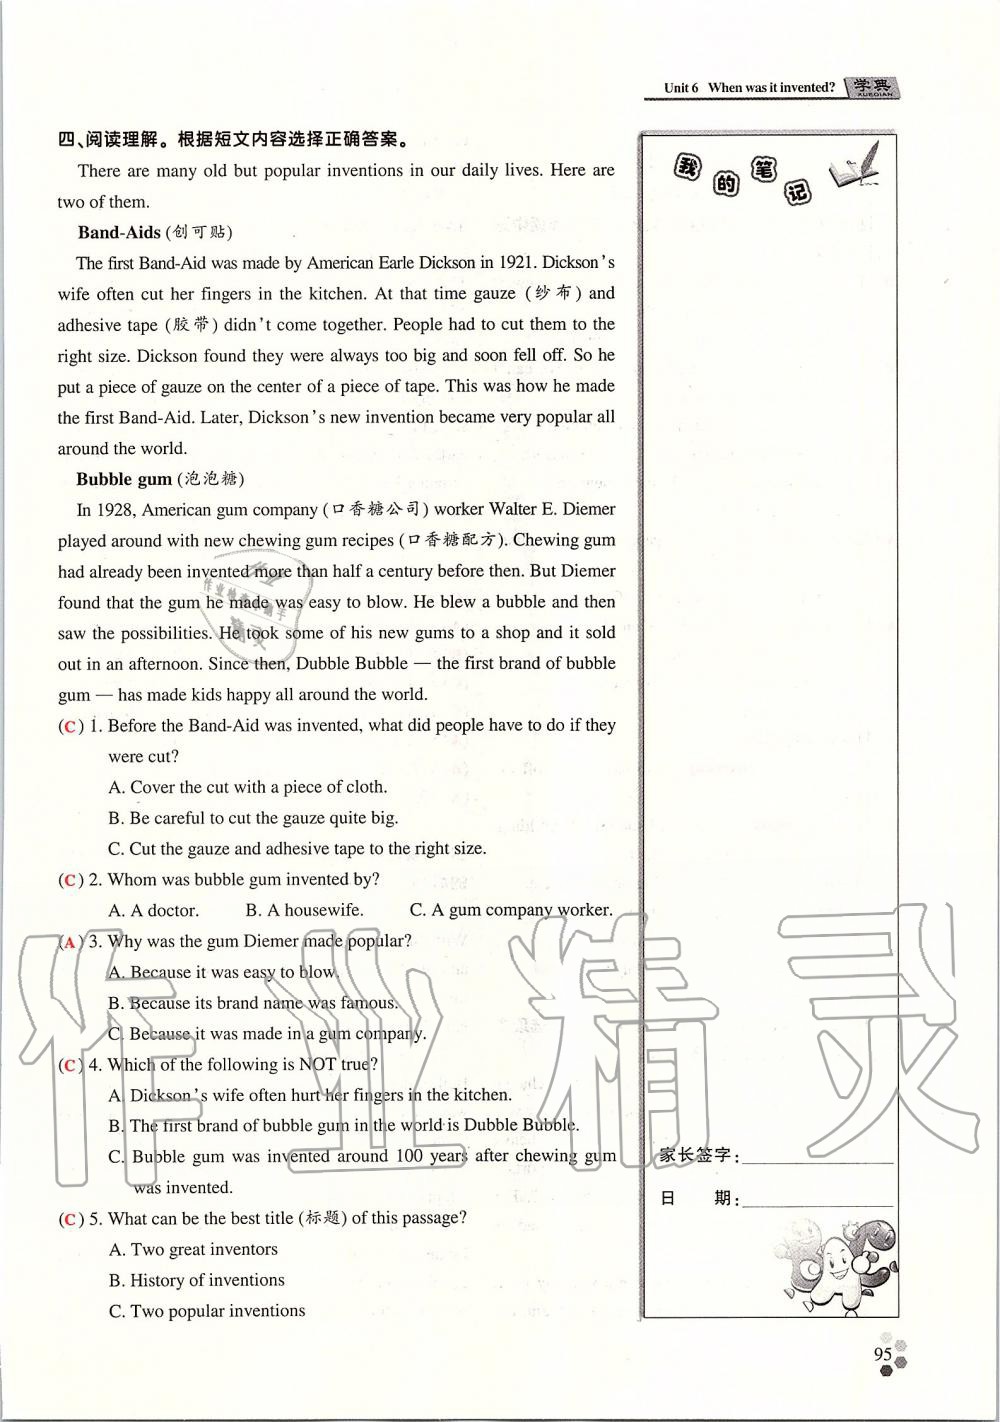 Unit 6 When was it invented? 学典
XUEDIAN
四、阅读理解。根据短文内容选择正确答案。
There are many old but popular inventions in our daily lives. Here are
two of them.
Band-Aids (创可贴)
The first Band-Aid was made by American Earle Dickson in 1921. Dickson's
wife often cut her fingers in the kitchen. At that time gauze (纱布) and
adhesive tape (胶带) didn't come together. People had to cut them to the
right size. Dickson found they were always too big and soon fell off. So he
put a piece of gauze on the center of a piece of tape. This was how he made
the first Band-Aid. Later, Dickson's new invention became very popular all
around the world.
Bubble gum (泡泡糖)
In 1928, American gum company (口香糖公司) worker Walter E. Diemer
played around with new chewing gum recipes (口香糖配方). Chewing gum
had already been invented more than half a century before then. But Diemer
found that the gum he made was easy to blow. He blew a bubble and then
saw the possibilities. He took some of his new gums to a shop and it sold
out in an afternoon. Since then, Dubble Bubble — the first brand of bubble
gum — has made kids happy all around the world.
(C) 1. Before the Band-Aid was invented, what did people have to do if they
were cut?
A. Cover the cut with a piece of cloth.
B. Be careful to cut the gauze quite big.
C. Cut the gauze and adhesive tape to the right size.
(C) 2. Whom was bubble gum invented by?
A. A doctor. B. A housewife. C. A gum company worker.
(A) 3. Why was the gum Diemer made popular?
A. Because it was easy to blow.
B. Because its brand name was famous.
C. Because it was made in a gum company.
(C) 4. Which of the following is NOT true?
A. Dickson's wife often hurt her fingers in the kitchen.
B. The first brand of bubble gum in the world is Dubble Bubble.
C. Bubble gum was invented around 100 years after chewing gum
was invented.
(C) 5. What can be the best title (标题) of this passage?
A. Two great inventors
B. History of inventions
C. Two popular inventions
我的笔记
家长签字：
日 期：
95
作业精灵